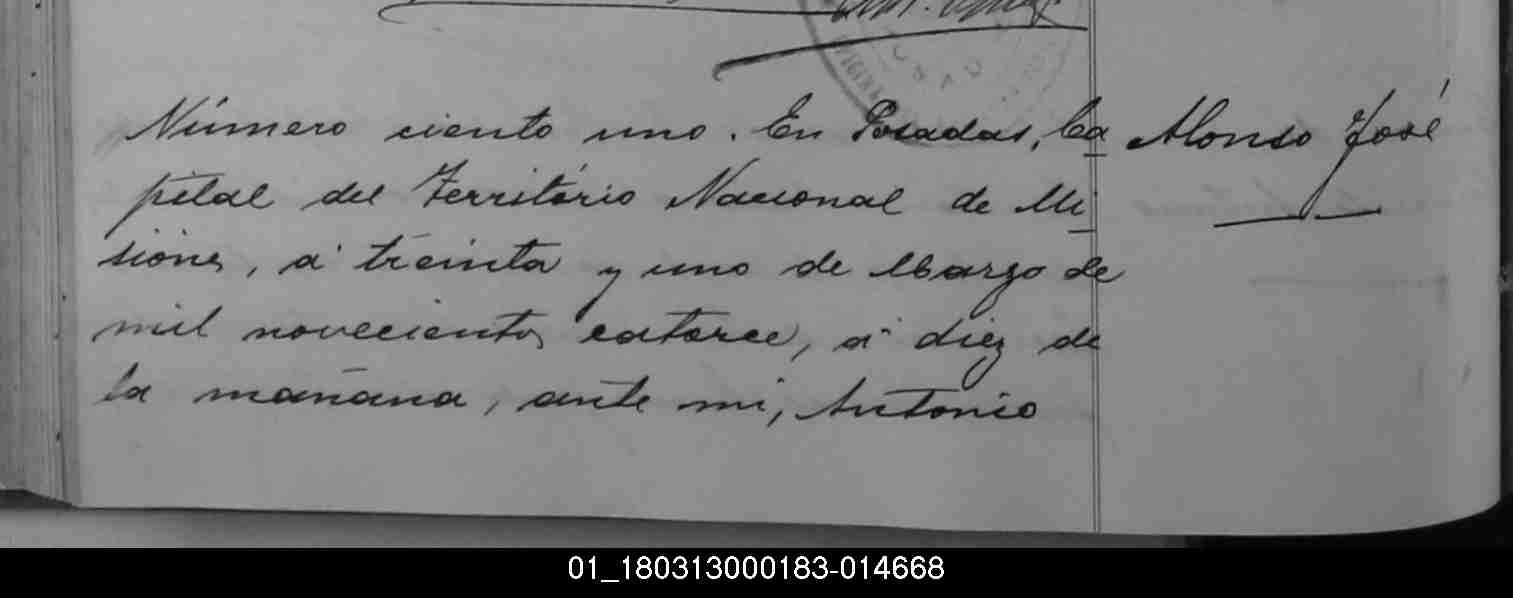 Número ciento uno. En Posadas, Ca
pital del Território Nacional de Mi
siones, á treinta y uno de Marzo de
mil novecientos catorce, á diez de
la mañana, ante mi, Antonio
Alonso José
01_180313000183-014668